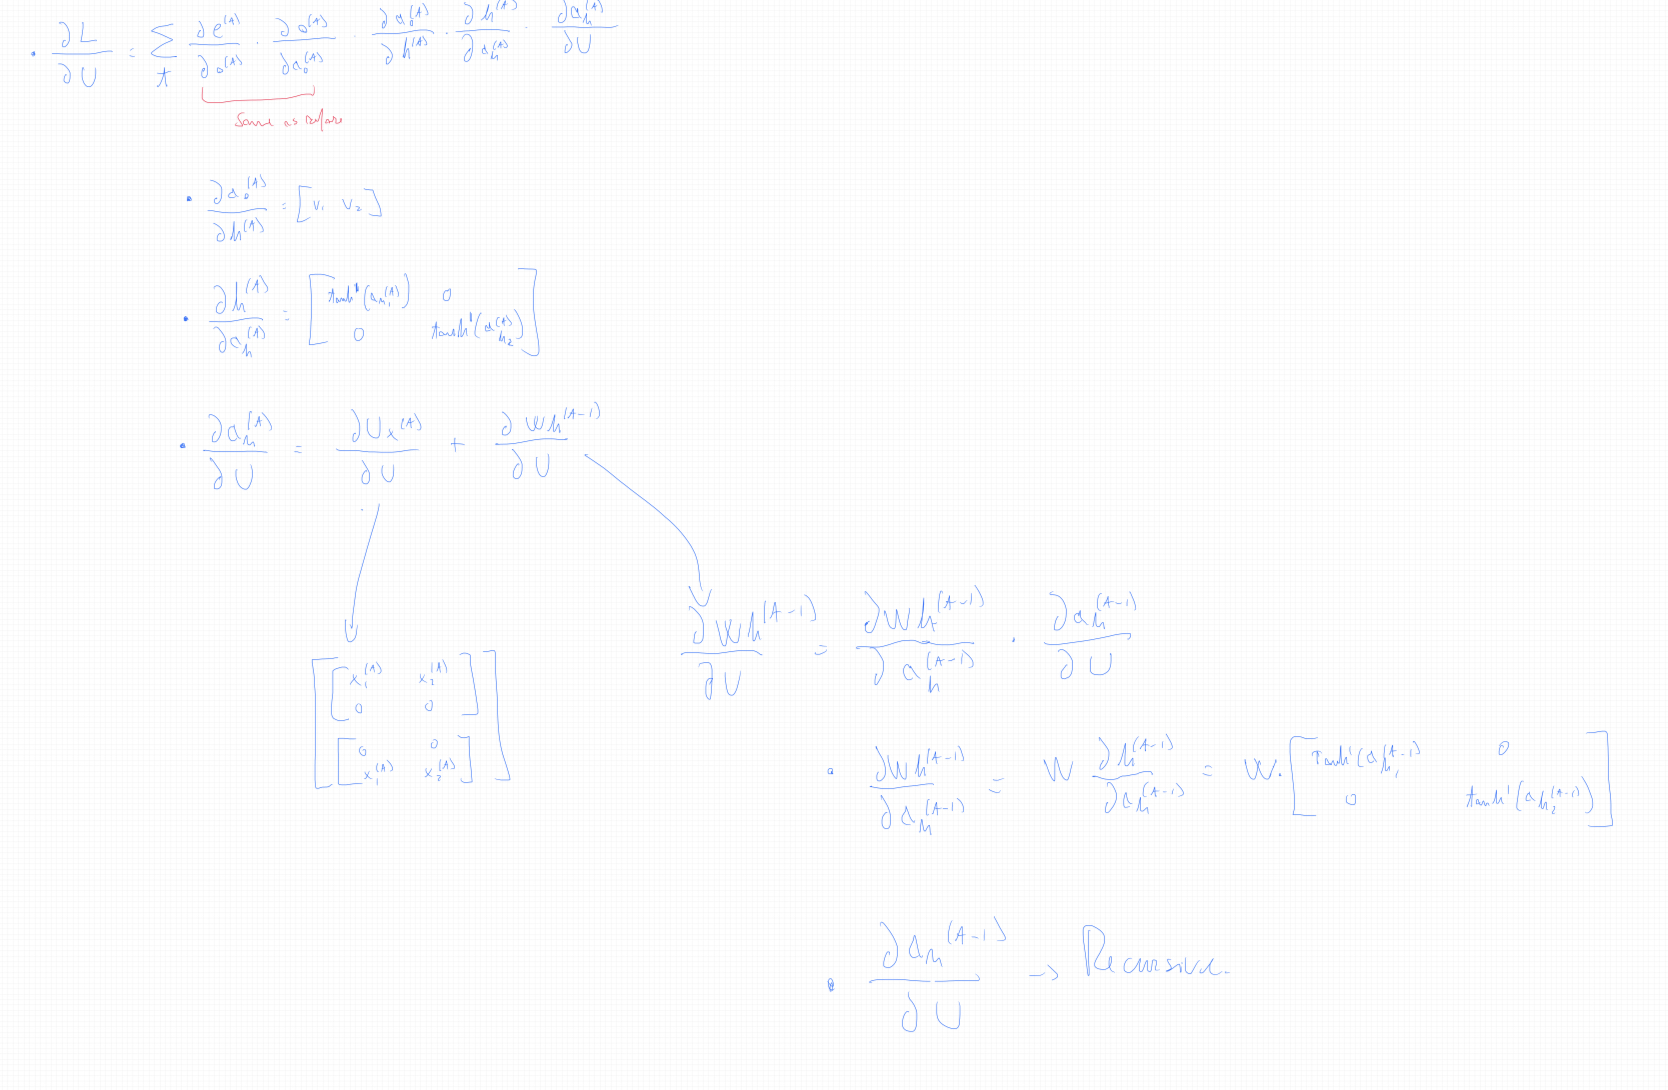 • ∂L/∂U = Σ_t ∂e^(t)/∂o^(t) · ∂o^(t)/∂a_o^(t) · ∂a_o^(t)/∂h^(t) · ∂h^(t)/∂a_h^(t) · ∂a_h^(t)/∂U
Same as before
• ∂a_o^(t)/∂h^(t) = [v_1 v_2]
• ∂h^(t)/∂a_h^(t) = [tanh'(a_h_1^(t)) 0
0 tanh'(a_h_2^(t))]
• ∂a_h^(t)/∂U = ∂Ux^(t)/∂U + ∂Wh^(t-1)/∂U
∂Wh^(t-1)/∂U = ∂Wh^(t-1)/∂a_h^(t-1) · ∂a_h^(t-1)/∂U
[[x_1^(t) x_2^(t)
0 0]
[0 0
x_1^(t) x_2^(t)]]
• ∂Wh^(t-1)/∂a_h^(t-1) = W ∂h^(t-1)/∂a_h^(t-1) = W · [tanh'(a_h_1^(t-1)) 0
0 tanh'(a_h_2^(t-1))]
• ∂a_h^(t-1)/∂U → Recursive.